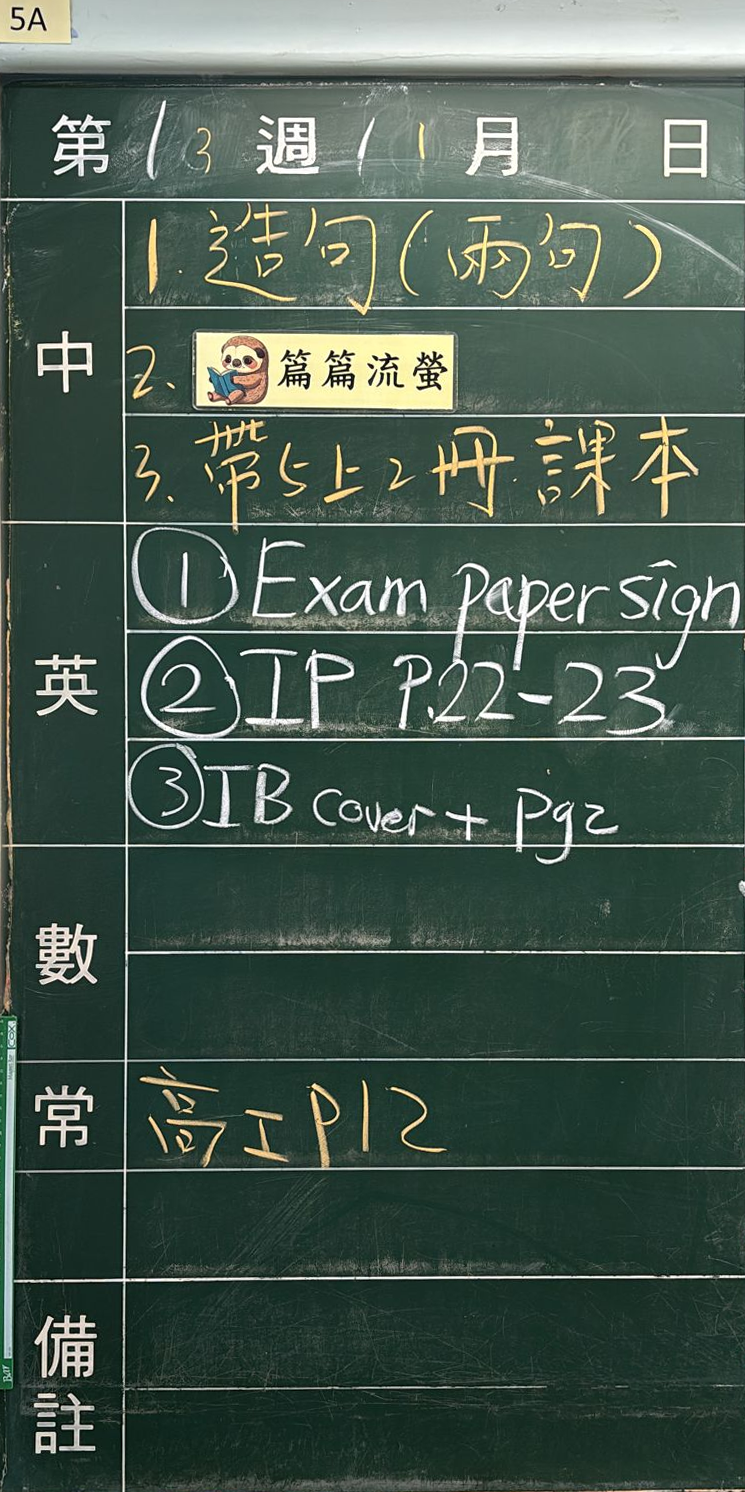 5A
第13週11月 日
中
1.造句(兩句)
2.篇篇流螢
3.帶5上2冊課本
英
①Exam paper sign
②IP P.22-23
③IB cover + pg2
數
常
高工P12
備註